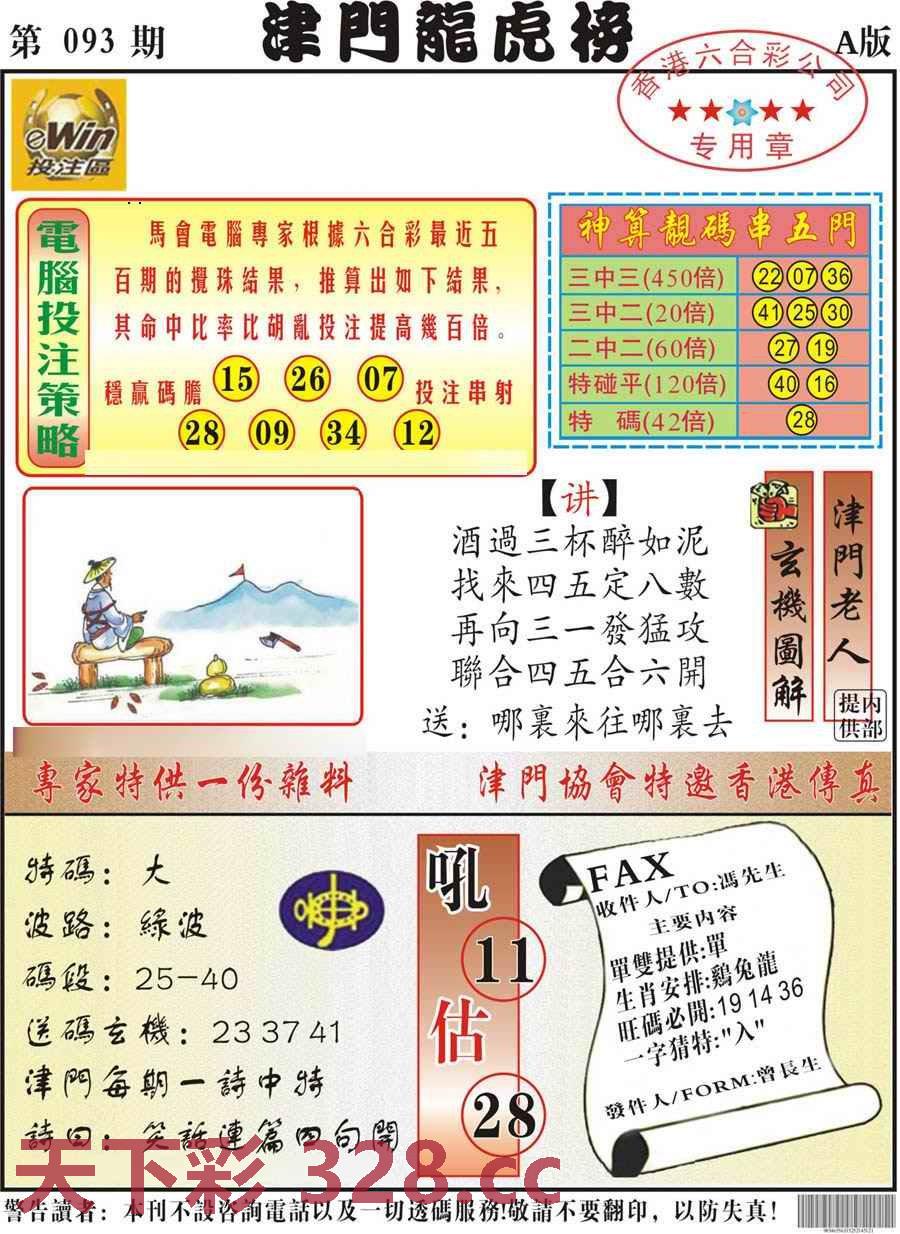 第 093 期
津門龍虎榜
A版
香港六合彩公司
专用章
eWin
投注區
電腦投注策略
馬會電腦專家根據六合彩最近五
百期的攪珠結果，推算出如下結果，
其命中比率比胡亂投注提高幾百倍。
穩贏碼膽 15 26 07 投注串射
28 09 34 12
神算靚碼串五門
三中三(450倍) 22 07 36
三中二(20倍) 41 25 30
二中二(60倍) 27 19
特碰平(120倍) 40 16
特 碼(42倍) 28
【讲】
酒過三杯醉如泥
找來四五定八數
再向三一發猛攻
聯合四五合六開
送：哪裏來往哪裏去
玄機圖解
津門老人
内部提供
專家特供一份雜料
津門協會特邀香港傳真
特碼：大
波路：綠波
碼段：25－40
送碼玄機：23 37 41
津門每期一詩中特
詩曰：笑話連篇四句開
吼
11
估
28
FAX
收件人/TO:馮先生
主要内容
單雙提供:單
生肖安排:鷄兔龍
旺碼必開:19 14 36
一字猜特:"入"
發件人/FORM:曾長生
天下彩 328.cc
警告讀者：本刊不設咨詢電話以及一切透碼服務!敬請不要翻印，以防失真!